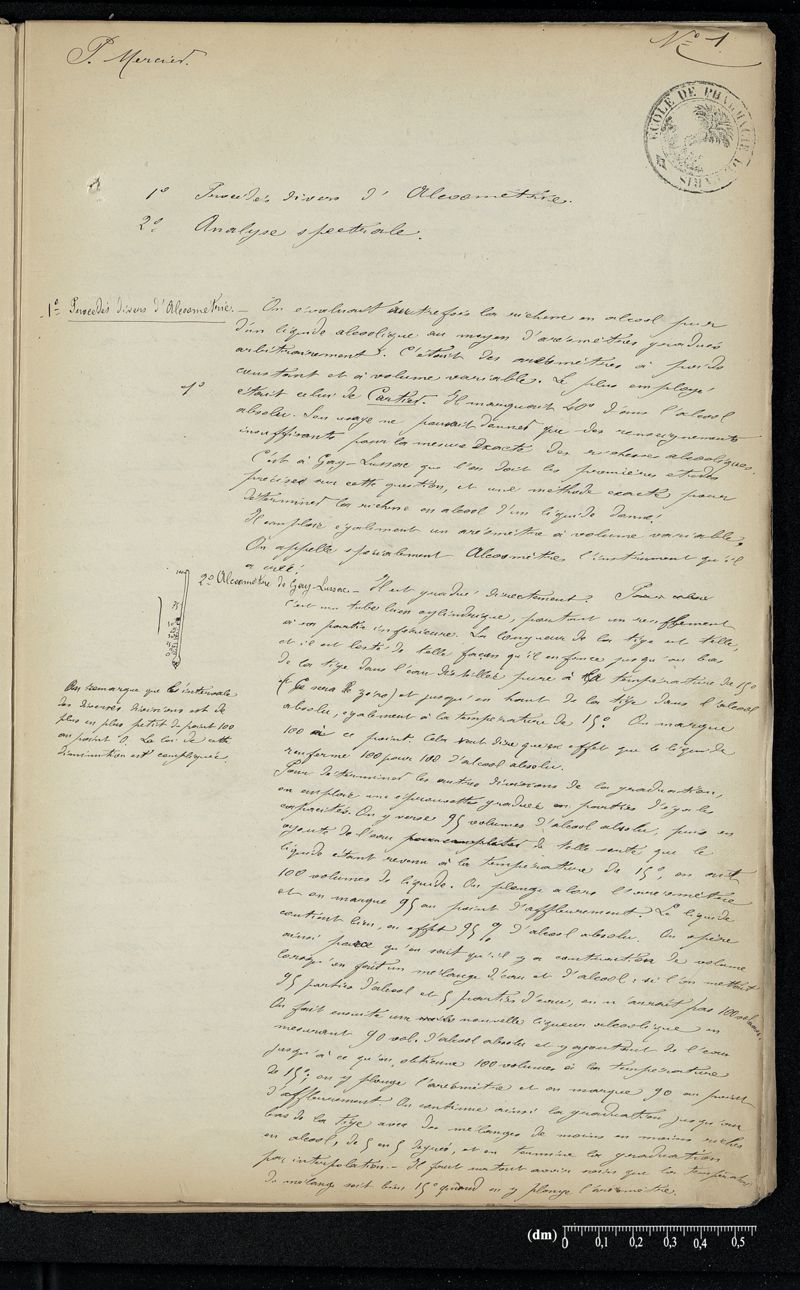 P. Mercier.
N° 1.
ÉCOLE DE PHARMACIE DE PARIS
1° Procédés divers d'Alcoométrie.
2° Analyse spectrale.
1° Procédés divers d'Alcoométrie. – On évaluait autrefois la richesse en alcool pur
d'un liquide alcoolique au moyen d'aréomètres gradués
arbitrairement. C'étaient des aréomètres à poids
constant et à volume variable. Le plus employé
1°
était celui de Cartier. Il marquait 40° dans l'alcool
absolu. Son usage ne pouvait donner que des renseignements
insuffisants pour la mesure exacte des richesses alcooliques.
C'est à Gay-Lussac que l'on doit les premières études
précises sur cette question, et une méthode exacte pour
déterminer la richesse en alcool d'un liquide donné.
Il emploie également un aréomètre à volume variable.
On appelle spécialement Alcoomètre l'instrument qu'il
a créé.
2° Alcoomètre de Gay-Lussac. – Il est gradué directement.
c'est un tube bien cylindrique, portant un renflement
à sa partie inférieure. La longueur de la tige est telle,
et il est lesté de telle façon qu'il enfonce jusqu'au bas
de la tige dans l'eau distillée pure à la température de 15°
(Ce sera le zéro) et jusqu'en haut de la tige dans l'alcool
absolu, également à la température de 15°. On marque
100 à ce point. Cela veut dire qu'en effet que le liquide
renferme 100 pour 100 d'alcool absolu.
On remarque que les intervalles
des diverses divisions est de
plus en plus petit du point 100
au point 0. La loi de cette
diminution est compliquée.
Pour déterminer les autres divisions de la graduation,
on emploie une éprouvette graduée en parties d'égale
capacités. On y verse 95 volumes d'alcool absolu, puis on
ajoute de l'eau pour compléter de telle sorte que le
liquide étant revenu à la température de 15°, on ait
100 volumes de liquide. On plonge alors l'aréomètre
et on marque 95 au point d'affleurement. Le liquide
contient bien, en effet 95 % d'alcool absolu. On opère
ainsi parce qu'on sait qu'il y a contraction de volume
lorsqu'on fait un mélange d'eau et d'alcool; si l'on mettait
95 parties d'alcool et 5 parties d'eau, on n'aurait pas 100 volumes.
On fait ensuite une nouvelle liqueur alcoolique en
mesurant 90 vol. d'alcool absolu et y ajoutant de l'eau
jusqu'à ce qu'on obtienne 100 volumes à la température
de 15°; on y plonge l'aréomètre et on marque 90 au point
d'affleurement. On continue ainsi la graduation jusqu'au
bas de la tige avec des mélanges de moins en moins riches
en alcool, de 5 en 5 degrés, et on termine la graduation
par interpolation. – Il faut surtout avoir soin que la température
du mélange soit bien 15° quand on y plonge l'aréomètre.
(dm) 0 0,1 0,2 0,3 0,4 0,5